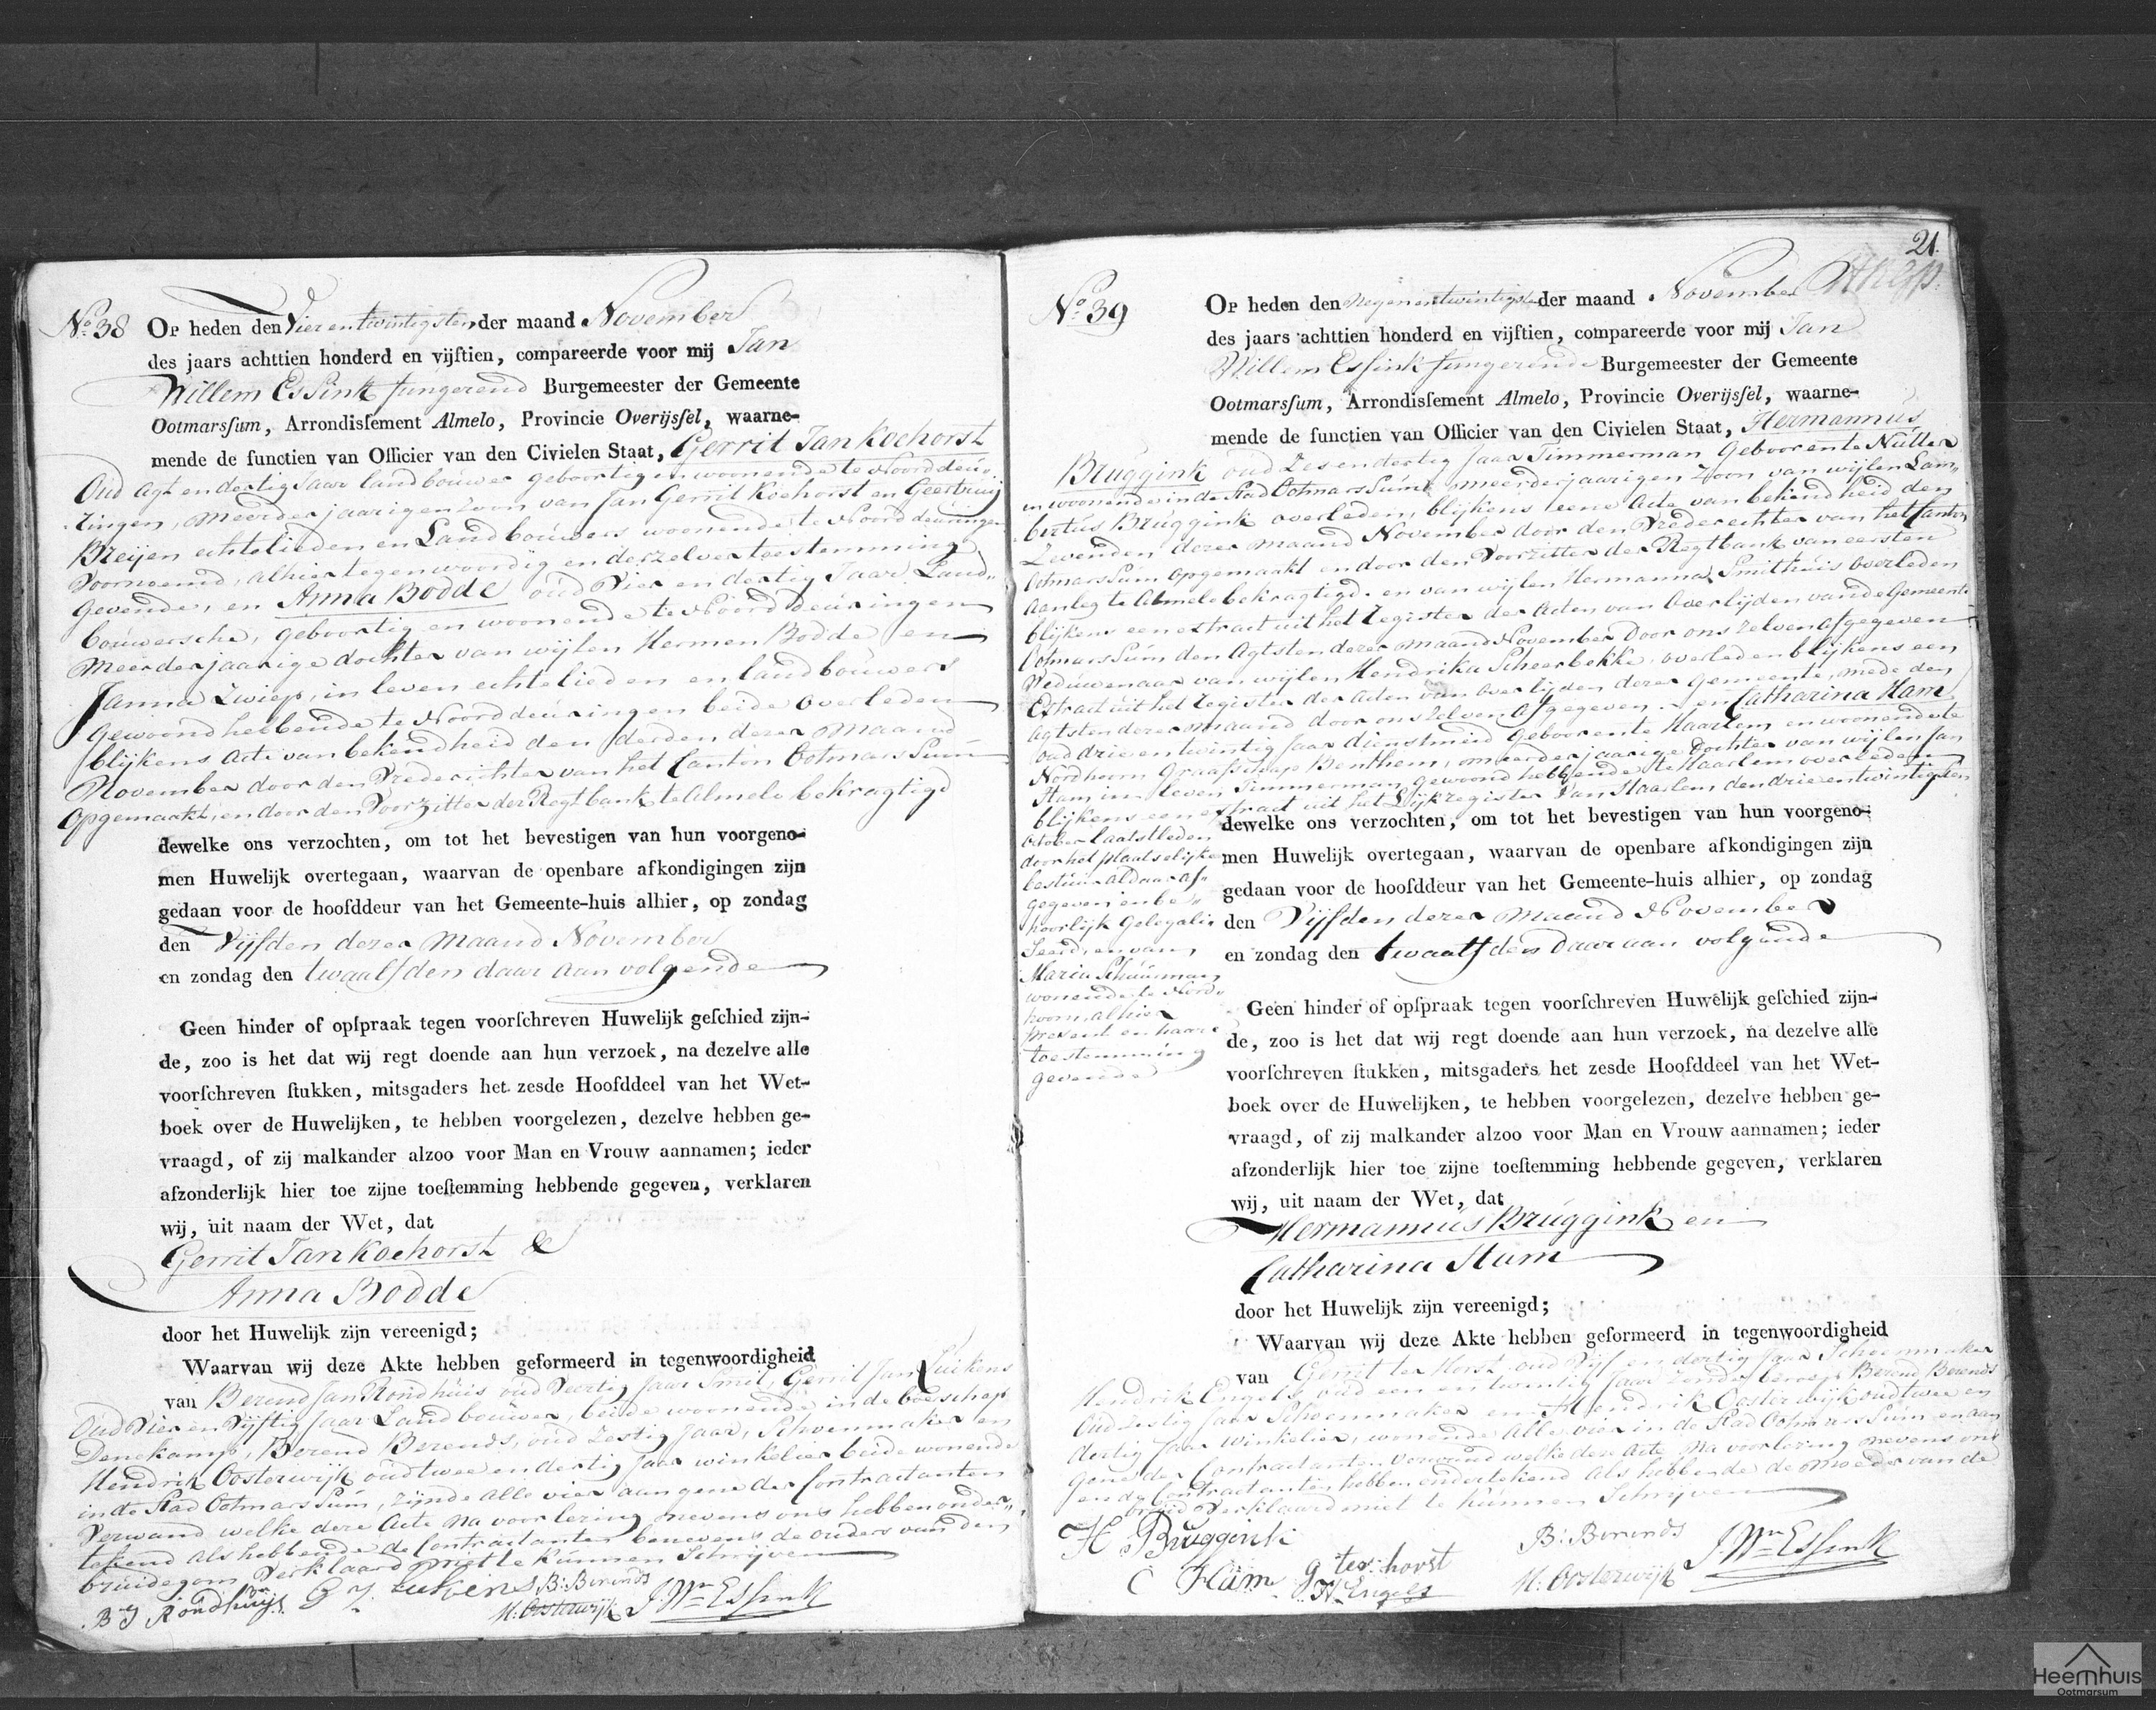 No. 38 Op heden den Vier en twintigsten der maand November
des jaars achttien honderd en vijftien, compareerde voor mij Jan
Willem Essink fungerend Burgemeester der Gemeente
Ootmarsſum, Arrondisſement Almelo, Provincie Overijsſel, waarne-
mende de functien van Officier van den Civielen Staat, Gerrit Jan Koehorst
Oud Agt en dertig Jaar landbouwer geboortig en woonende te Noord deu-
ringen, meerderjaarigen Zoon van Jan Gerrit Koehorst en Geertruij
Breijen echtelieden en Landbouwers woonende te Noord deuringen
Voornoemd, alhier tegenwoordig en derzelver toestemming
gevende, en Anna Bodde oud Vier en dertig Jaar Land-
bouwersche, geboortig en woonende te Noord deuringen
meerderjaarige dochter van wijlen Hermen Bodde en
Janna Zwiep, in leven echtelieden en landbouwers
gewoond hebbende te Noord deuringen beide overleden
blijkens Acte van bekendheid den derden dezer Maand
November door den Vrederichter van het Canton Ootmarssum
opgemaakt, en door den Voorzitter der Regtbank te Almelo bekragtigd
dewelke ons verzochten, om tot het bevestigen van hun voorgeno-
men Huwelijk overtegaan, waarvan de openbare afkondigingen zijn
gedaan voor de hoofddeur van het Gemeente-huis alhier, op zondag
den Vijfden dezer Maand November
en zondag den twaalfden daar aan volgende
Geen hinder of opſpraak tegen voorſchreven Huwelijk geſchied zijn-
de, zoo is het dat wij regt doende aan hun verzoek, na dezelve alle
voorſchreven ſtukken, mitsgaders het zesde Hoofddeel van het Wet-
boek over de Huwelijken, te hebben voorgelezen, dezelve hebben ge-
vraagd, of zij malkander alzoo voor Man en Vrouw aannamen; ieder
afzonderlijk hier toe zijne toeſtemming hebbende gegeven, verklaren
wij, uit naam der Wet, dat
Gerrit Jan Koehorst &
Anna Bodde
door het Huwelijk zijn vereenigd;
Waarvan wij deze Akte hebben geformeerd in tegenwoordigheid
van Berend Jan Rondhuis oud Veertig Jaar Smit, Gerrit Jan Luikens
Oud Vier en Vijftig Jaar Landbouwer, beide woonende in de boeschap
Denekamp, Berend Berends, oud Zestig Jaar, Schoenmaker en
Hendrik Oosterwijk oud twee en dertig Jaar winkelier beide wonende
in de Stad Ootmarssum, zijnde alle vier aan gene der Contractanten
Verwand welke deze Acte na voorlezing nevens ons hebben onder-
tekend als hebbende de Contractanten benevens de ouders van den
bruidegom Verklaard niet te kunnen Schrijven
BJ Rondhuijs G J Luikens B: Berends
H: Oosterwijk J. Wm Essink
21
No. 39
Op heden den Negen en twintigsten der maand November
des jaars achttien honderd en vijftien, compareerde voor mij Jan
Willem Essink fungerende Burgemeester der Gemeente
Ootmarsſum, Arrondisſement Almelo, Provincie Overijsſel, waarne-
mende de functien van Officier van den Civielen Staat, Hermannus
Bruggink oud Zes en dertig Jaar Timmerman Geboren te Nutter
en woonende in de Stad Ootmarssum, meerderjaarigen Zoon van wijlen Lam-
bertus Bruggink overleden, blijkens eene Acte van bekendheid den
Zevenden dezer maand November door den Vrederechter van het Canton
Ootmarssum opgemaakt en door den Voorzitter der Regtbank van eersten
Aanleg te Almelo bekragtigd. en van wijlen Hermanna Smithuis overleden
blijkens een extract uit het Register der Acten van Overlijden van de Gemeente
Ootmarssum den Agtsten dezer maand November door ons zelven afgegeven
Weduwenaar van wijlen Hendrika Scheerbekke, overleden blijkens een
Extract uit het Register der Acten van Overlijden dezer Gemeente, mede den
Agtsten dezer maand door ons zelven Afgegeven. en Catharina Ham
oud drie en twintig Jaar dienstmeid Geboren te Haarlem en woonende te
Nordhoorn Graafschap Benthem, meerderjaarige Dochter van wijlen Jan
Ham in leven Timmerman, gewoond hebbende te Haarlem overleden
blijkens een extract uit het Lijkregister van Haarlem den drie en twintigsten
October laatstleden
door het plaatselijke
bestuur aldaar af-
gegeven en be-
hoorlijk Gelegali-
seerd, en van
Maria Schuurman
wonende te Nord-
hoorn, alhier
present en haare
toestemming
gevende
dewelke ons verzochten, om tot het bevestigen van hun voorgeno-
men Huwelijk overtegaan, waarvan de openbare afkondigingen zijn
gedaan voor de hoofddeur van het Gemeente-huis alhier, op zondag
den Vijfden dezer Maand November
en zondag den twaalfden Daar aan volgende
Geen hinder of opſpraak tegen voorſchreven Huwelijk geſchied zijn-
de, zoo is het dat wij regt doende aan hun verzoek, na dezelve alle
voorſchreven ſtukken, mitsgaders het zesde Hoofddeel van het Wet-
boek over de Huwelijken, te hebben voorgelezen, dezelve hebben ge-
vraagd, of zij malkander alzoo voor Man en Vrouw aannamen; ieder
afzonderlijk hier toe zijne toeſtemming hebbende gegeven, verklaren
wij, uit naam der Wet, dat
Hermannus Bruggink en
Catharina Ham
door het Huwelijk zijn vereenigd;
Waarvan wij deze Akte hebben geformeerd in tegenwoordigheid
van Gerrit ter Horst oud Vijf en dertig Jaar Schoenmaker
Hendrik Engels, oud een en twintig Jaar zonder beroep Berend Berends
Oud zestig Jaar Schoenmaker en Hendrik Oosterwijk oud twee en
dertig Jaar Winkelier, wonende Alle vier in de Stad Ootmarssum en aan
gene der Contractanten Verwand welke deze Acte Na voorlezing nevens ons
en de Contractanten hebben ondertekend als hebbende de Moeder van de
bruid Verklaard niet te kunnen Schrijven
H Bruggink
C Ham g ter: horst B: Berends
H Engels H: Oosterwijk J. Wm Essink
Heemhuis
Ootmarsum